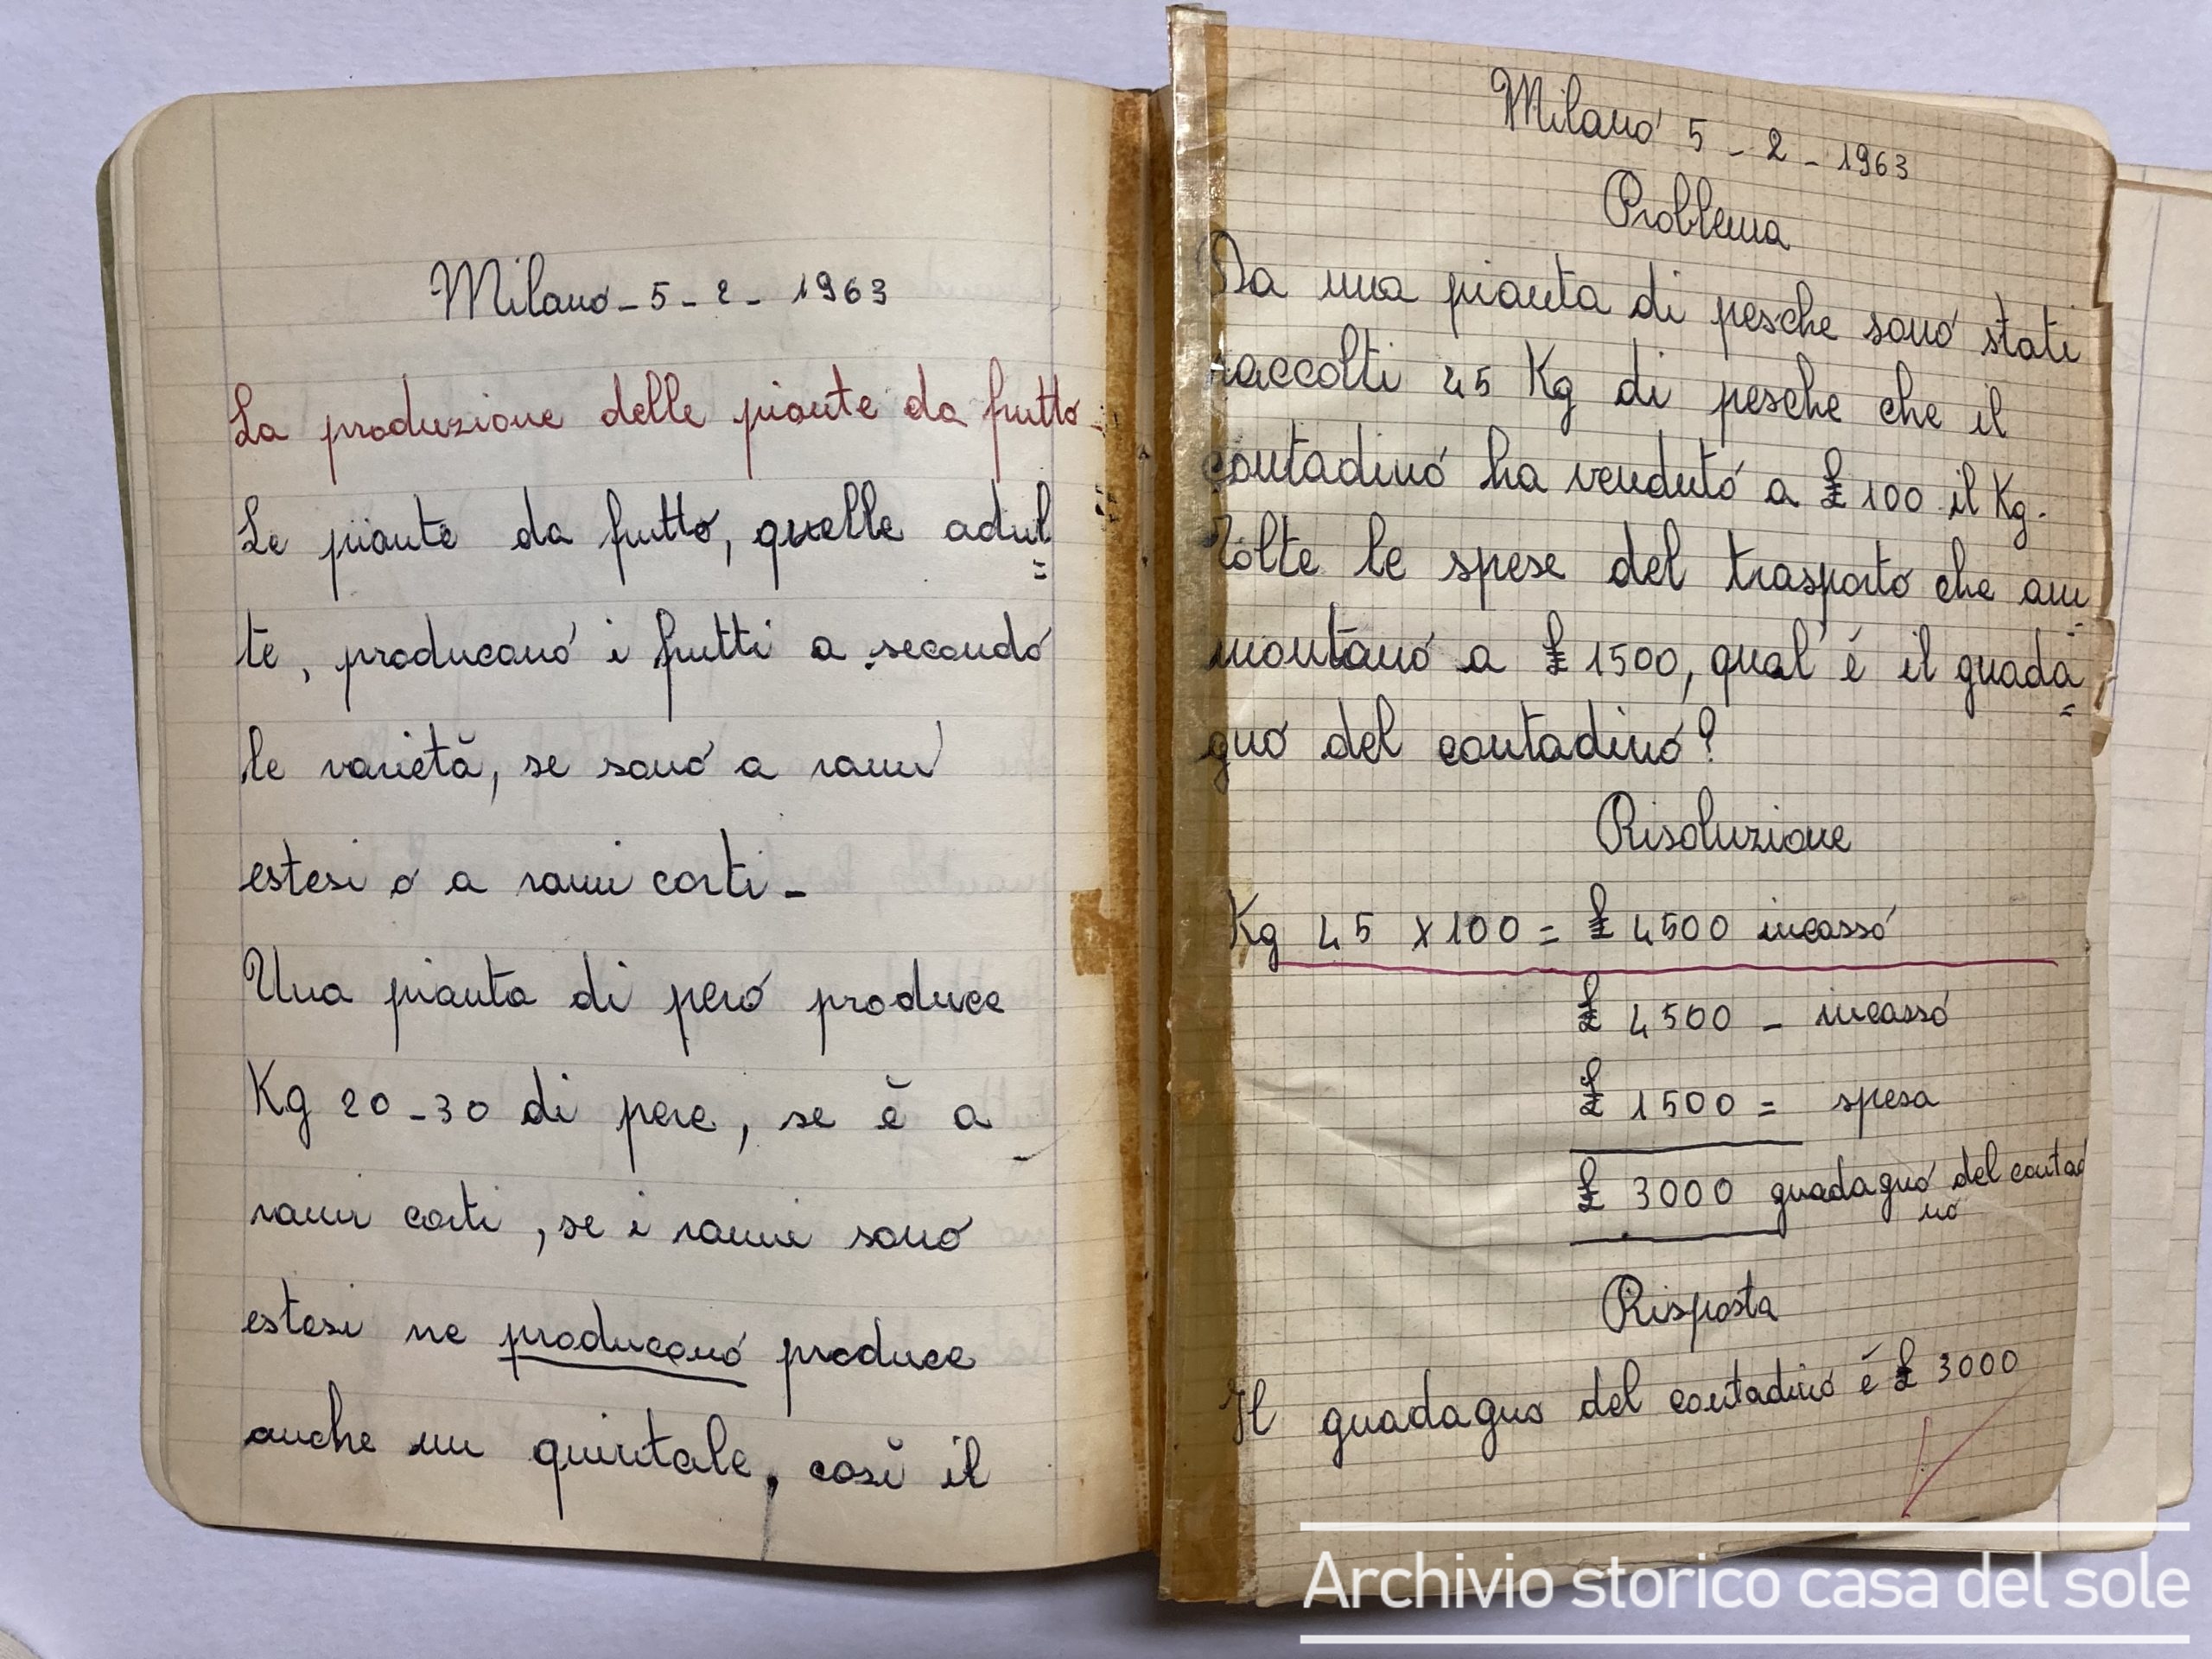 Milano - 5 - 2 - 1963
La produzione delle piante da frutto -
Le piante da frutto, quelle adul=
te, producono i frutti a secondo
le varietà, se sono a rami
estesi o a rami corti -
Una pianta di pero produce
Kg 20-30 di pere, se è a
rami corti, se i rami sono
estesi ne producono produce
anche un quintale, così il
Milano 5 - 2 - 1963
Problema
Da una pianta di pesche sono stati
raccolti 45 Kg di pesche che il
contadino ha venduto a £ 100 il Kg.
Tolte le spese del trasporto che am=
montano a £ 1500, qual'é il guada=
gno del contadino?
Risoluzione
Kg 45 x 100 = £ 4500 incasso
£ 4500 - incasso
£ 1500 = spesa
£ 3000 guadagno del contad
no
Risposta
Il guadagno del contadino é £ 3000
Archivio storico casa del sole